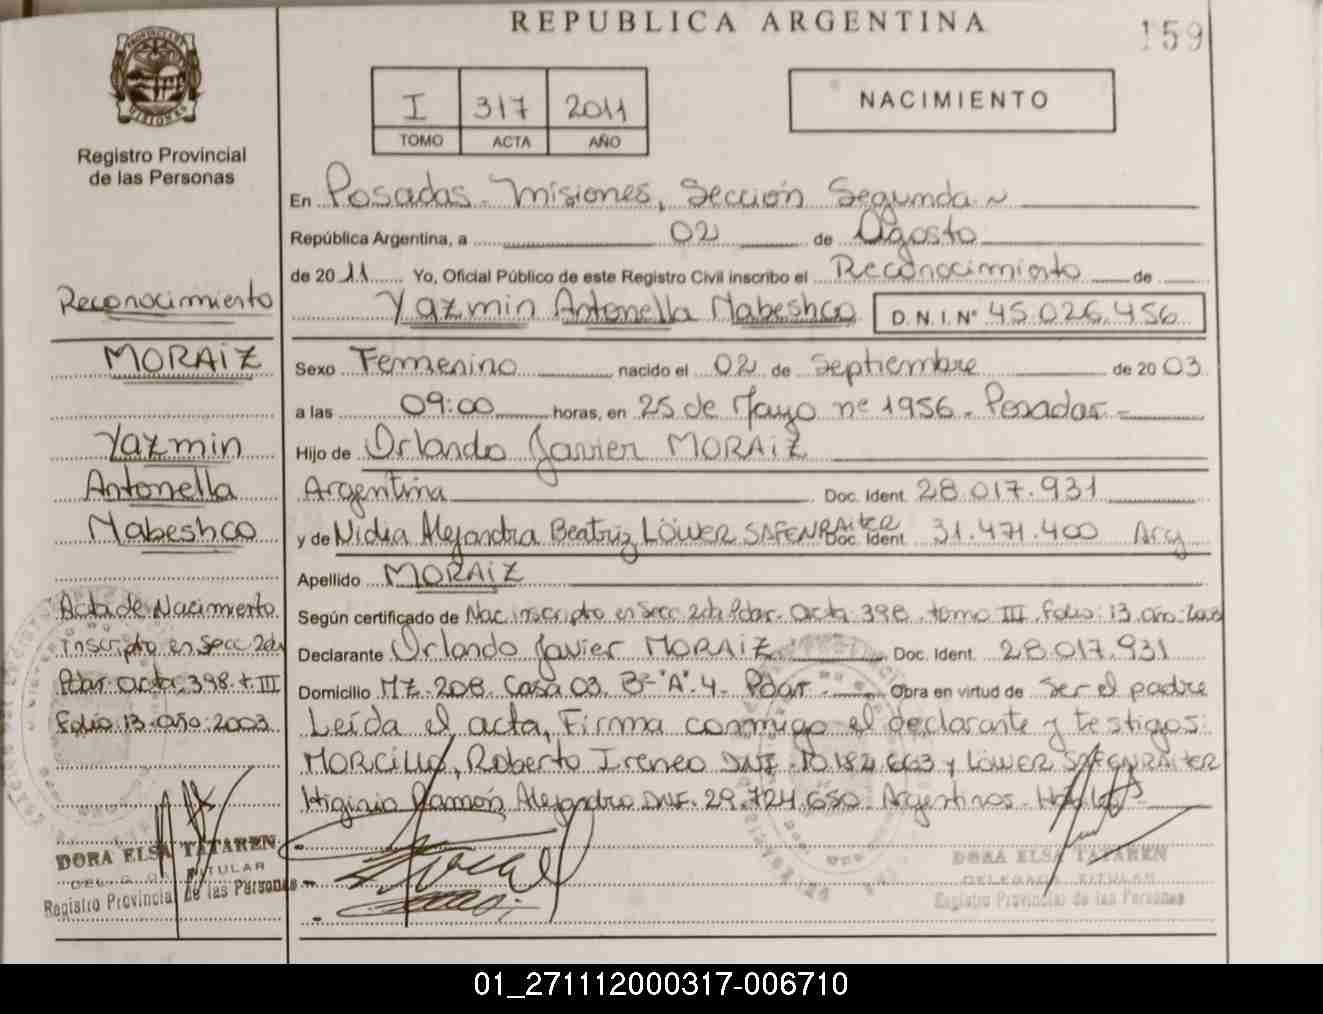 REPUBLICA ARGENTINA
159
PROVINCIA DE
MISIONES
Registro Provincial
de las Personas
I 317 2011
TOMO ACTA AÑO
NACIMIENTO
En Posadas - Misiones, Sección Segunda ~
República Argentina, a 02 de Agosto
de 2011 Yo, Oficial Público de este Registro Civil inscribo el Reconocimiento de
Yazmin Antonella Mabeshca D.N.I. Nº 45.026.456
Sexo Femenino nacido el 02 de Septiembre de 2003
a las 09:00 horas, en 25 de Mayo nº 1956 - Posadas -
Hijo de Orlando Javier MORAIZ
Argentina Doc. Ident. 28.017.931
y de Nidia Alejandra Beatriz LÖWER SAFENRAITER Doc. Ident. 31.471.400 Arg
Apellido MORAIZ
Según certificado de Nac. inscripto en Secc. 2da Pdas. Acta 398 - tomo III - Folio: 13 año: 2003
Declarante Orlando Javier MORAIZ Doc. Ident. 28.017.931
Domicilio Mz. 208 Casa 03 Bº "A" 4 - Pdas - Obra en virtud de Ser el padre
Leída el acta, Firma conmigo el declarante y testigos:
MORCILLO, Roberto Ireneo DNI 10.182.663 y LÖWER SAFENRAITER
Higinio Ramón Alejandro DNI. 29.724.650 Argentinos -
Reconocimiento
MORAIZ
Yazmin
Antonella
Mabeshca
Acta de Nacimiento
inscripto en Secc 2da
Pdas. Acta: 398 t. III
Folio: 13 año: 2003
DORA ELSA TATAREN
DELEGADA TITULAR
Registro Provincial de las Personas
DORA ELSA TATAREN
DELEGADA TITULAR
Registro Provincial de las Personas
01_271112000317-006710